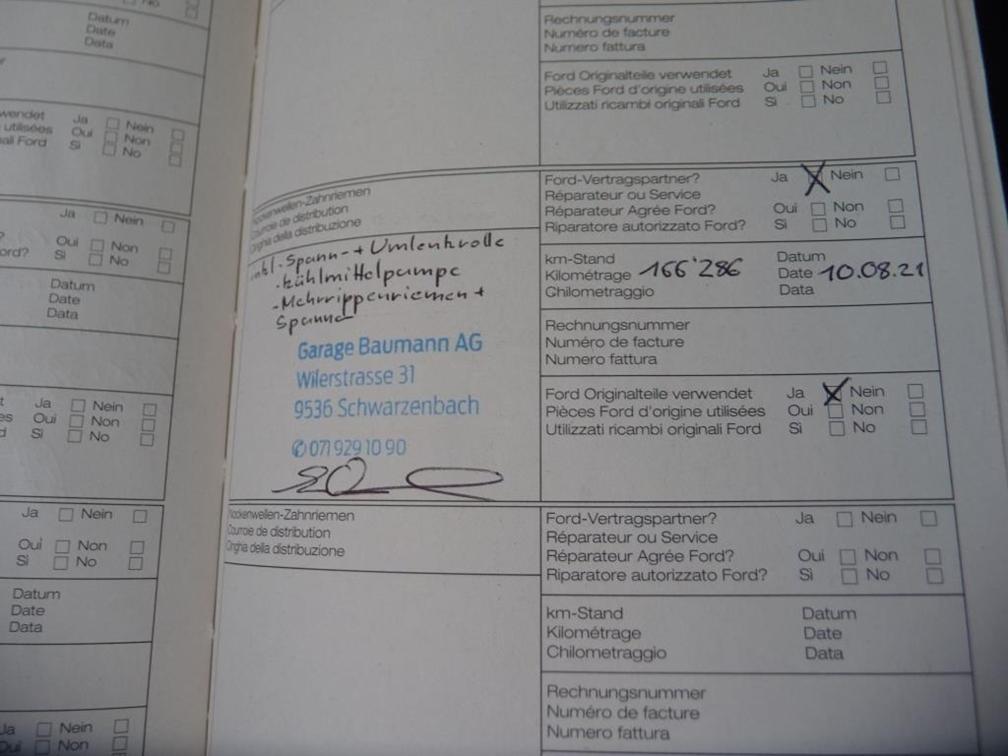 No
Datum
Date
Data
Ja Nein
utilisées Oui Non
Ford Sì No
Ja Nein
Oui Non
Sì No
Datum
Date
Data
Ja Nein
Oui Non
Sì No
Ja Nein
Oui Non
Sì No
Datum
Date
Data
Ja Nein
Oui Non
Rechnungsnummer
Numéro de facture
Numero fattura
Ford Originalteile verwendet Ja Nein
Pièces Ford d'origine utilisées Oui Non
Utilizzati ricambi originali Ford Sì No
Nockenwellen-Zahnriemen
Courroie de distribution
Cinghia della distribuzione
inkl. Spann- + Umlenkrolle
- Kühlmittelpumpe
- Mehrrippenriemen +
Spanner
Garage Baumann AG
Wilerstrasse 31
9536 Schwarzenbach
✆ 071 929 10 90
Ford-Vertragspartner? Ja Nein
Réparateur ou Service
Réparateur Agrée Ford? Oui Non
Riparatore autorizzato Ford? Sì No
km-Stand Datum
Kilométrage 166'286 Date 10.08.21
Chilometraggio Data
Rechnungsnummer
Numéro de facture
Numero fattura
Ford Originalteile verwendet Ja Nein
Pièces Ford d'origine utilisées Oui Non
Utilizzati ricambi originali Ford Sì No
Nockenwellen-Zahnriemen
Courroie de distribution
Cinghia della distribuzione
Ford-Vertragspartner? Ja Nein
Réparateur ou Service
Réparateur Agrée Ford? Oui Non
Riparatore autorizzato Ford? Sì No
km-Stand Datum
Kilométrage Date
Chilometraggio Data
Rechnungsnummer
Numéro de facture
Numero fattura